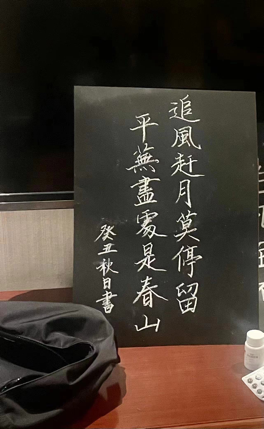 追風赶月莫停留
平蕪盡處是春山
癸丑秋日書